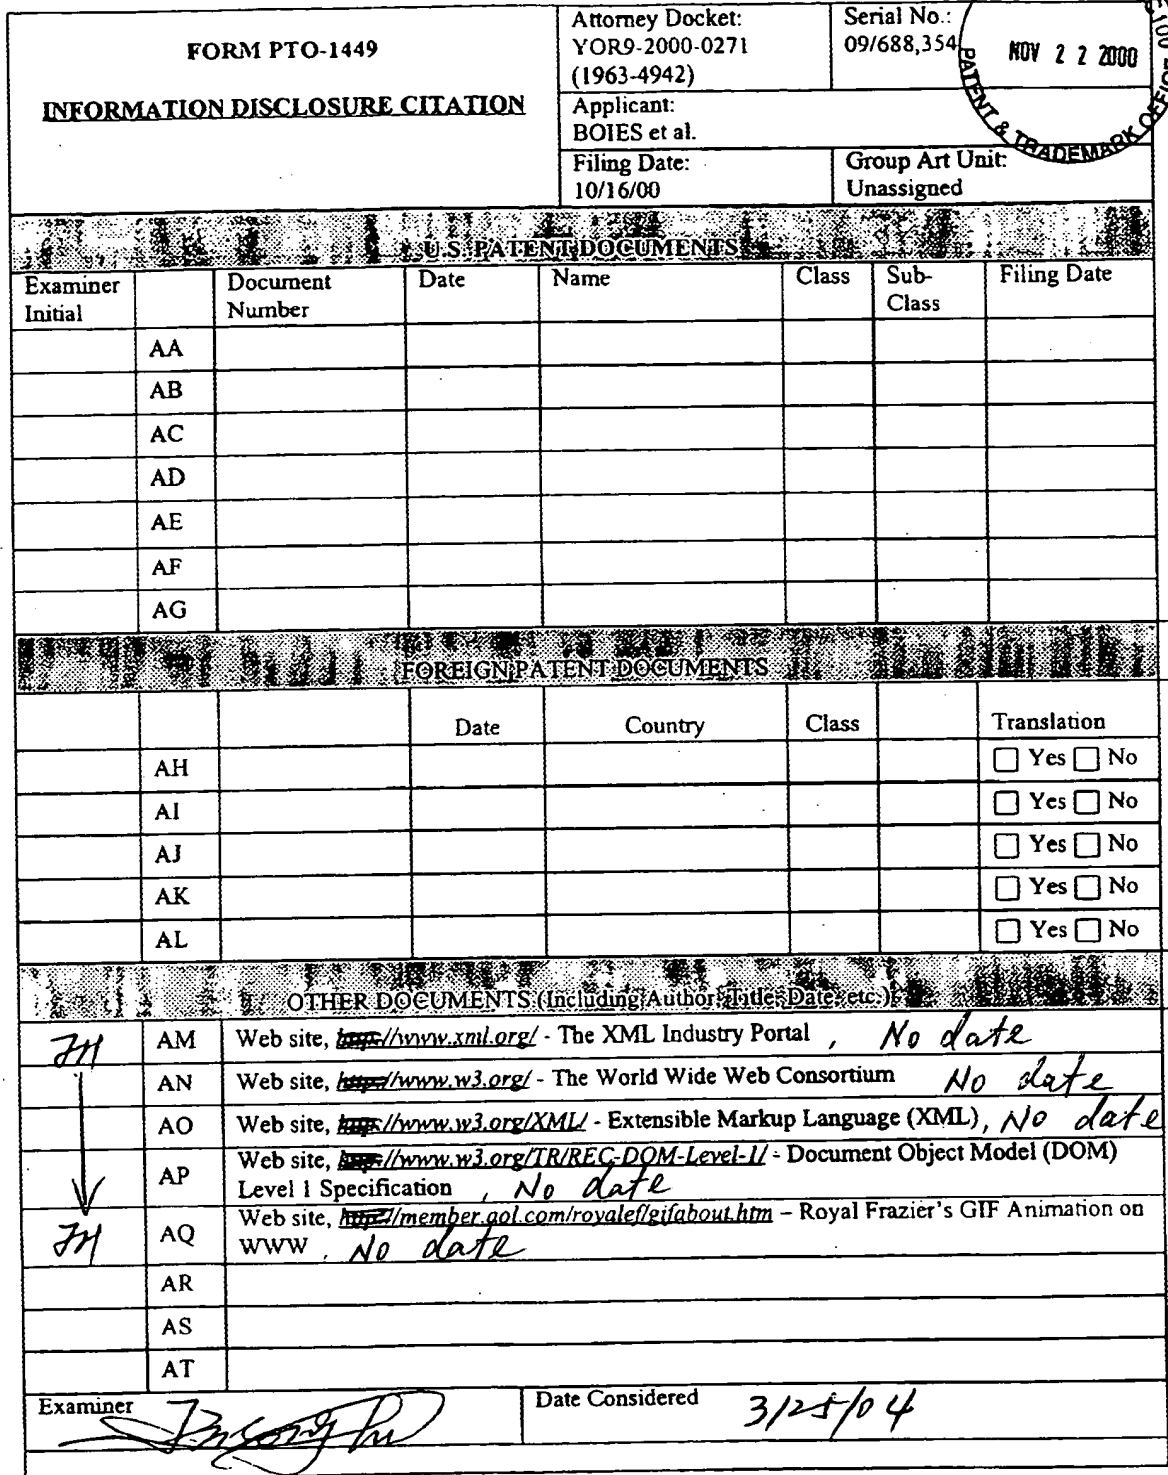 FORM PTO-1449
INFORMATION DISCLOSURE CITATION
Attorney Docket:
YOR9-2000-0271
(1963-4942)
Serial No.:
09/688,354
NOV 2 2 2000
PATENT & TRADEMARK OFFICE
Applicant:
BOIES et al.
Filing Date:
10/16/00
Group Art Unit:
Unassigned
U.S. PATENT DOCUMENTS
Examiner Initial Document Number Date Name Class Sub-Class Filing Date
AA
AB
AC
AD
AE
AF
AG
FOREIGN PATENT DOCUMENTS
Date Country Class Translation
AH Yes No
AI Yes No
AJ Yes No
AK Yes No
AL Yes No
OTHER DOCUMENTS (Including Author, Title, Date, etc.)
AM Web site, http://www.xml.org/ - The XML Industry Portal , No date
AN Web site, http://www.w3.org/ - The World Wide Web Consortium No date
AO Web site, http://www.w3.org/XML/ - Extensible Markup Language (XML), No date
AP Web site, http://www.w3.org/TR/REC-DOM-Level-1/ - Document Object Model (DOM)
Level 1 Specification , No date
AQ Web site, http://member.aol.com/royalef/gifabout.htm – Royal Frazier's GIF Animation on
WWW , No date
AR
AS
AT
Examiner
Date Considered 3/25/04